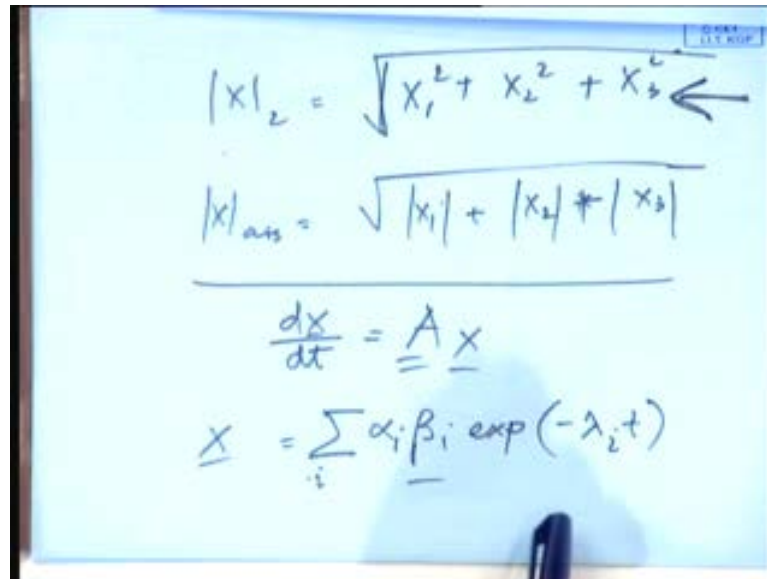 I.I.T. KGP
|x|₂ = √(x₁² + x₂² + x₃²) ←
|x|ₐᵦₛ = √(|x₁| + |x₂| + |x₃|)
dx/dt = A x
x = ∑ᵢ αᵢ βᵢ exp(-λᵢt)